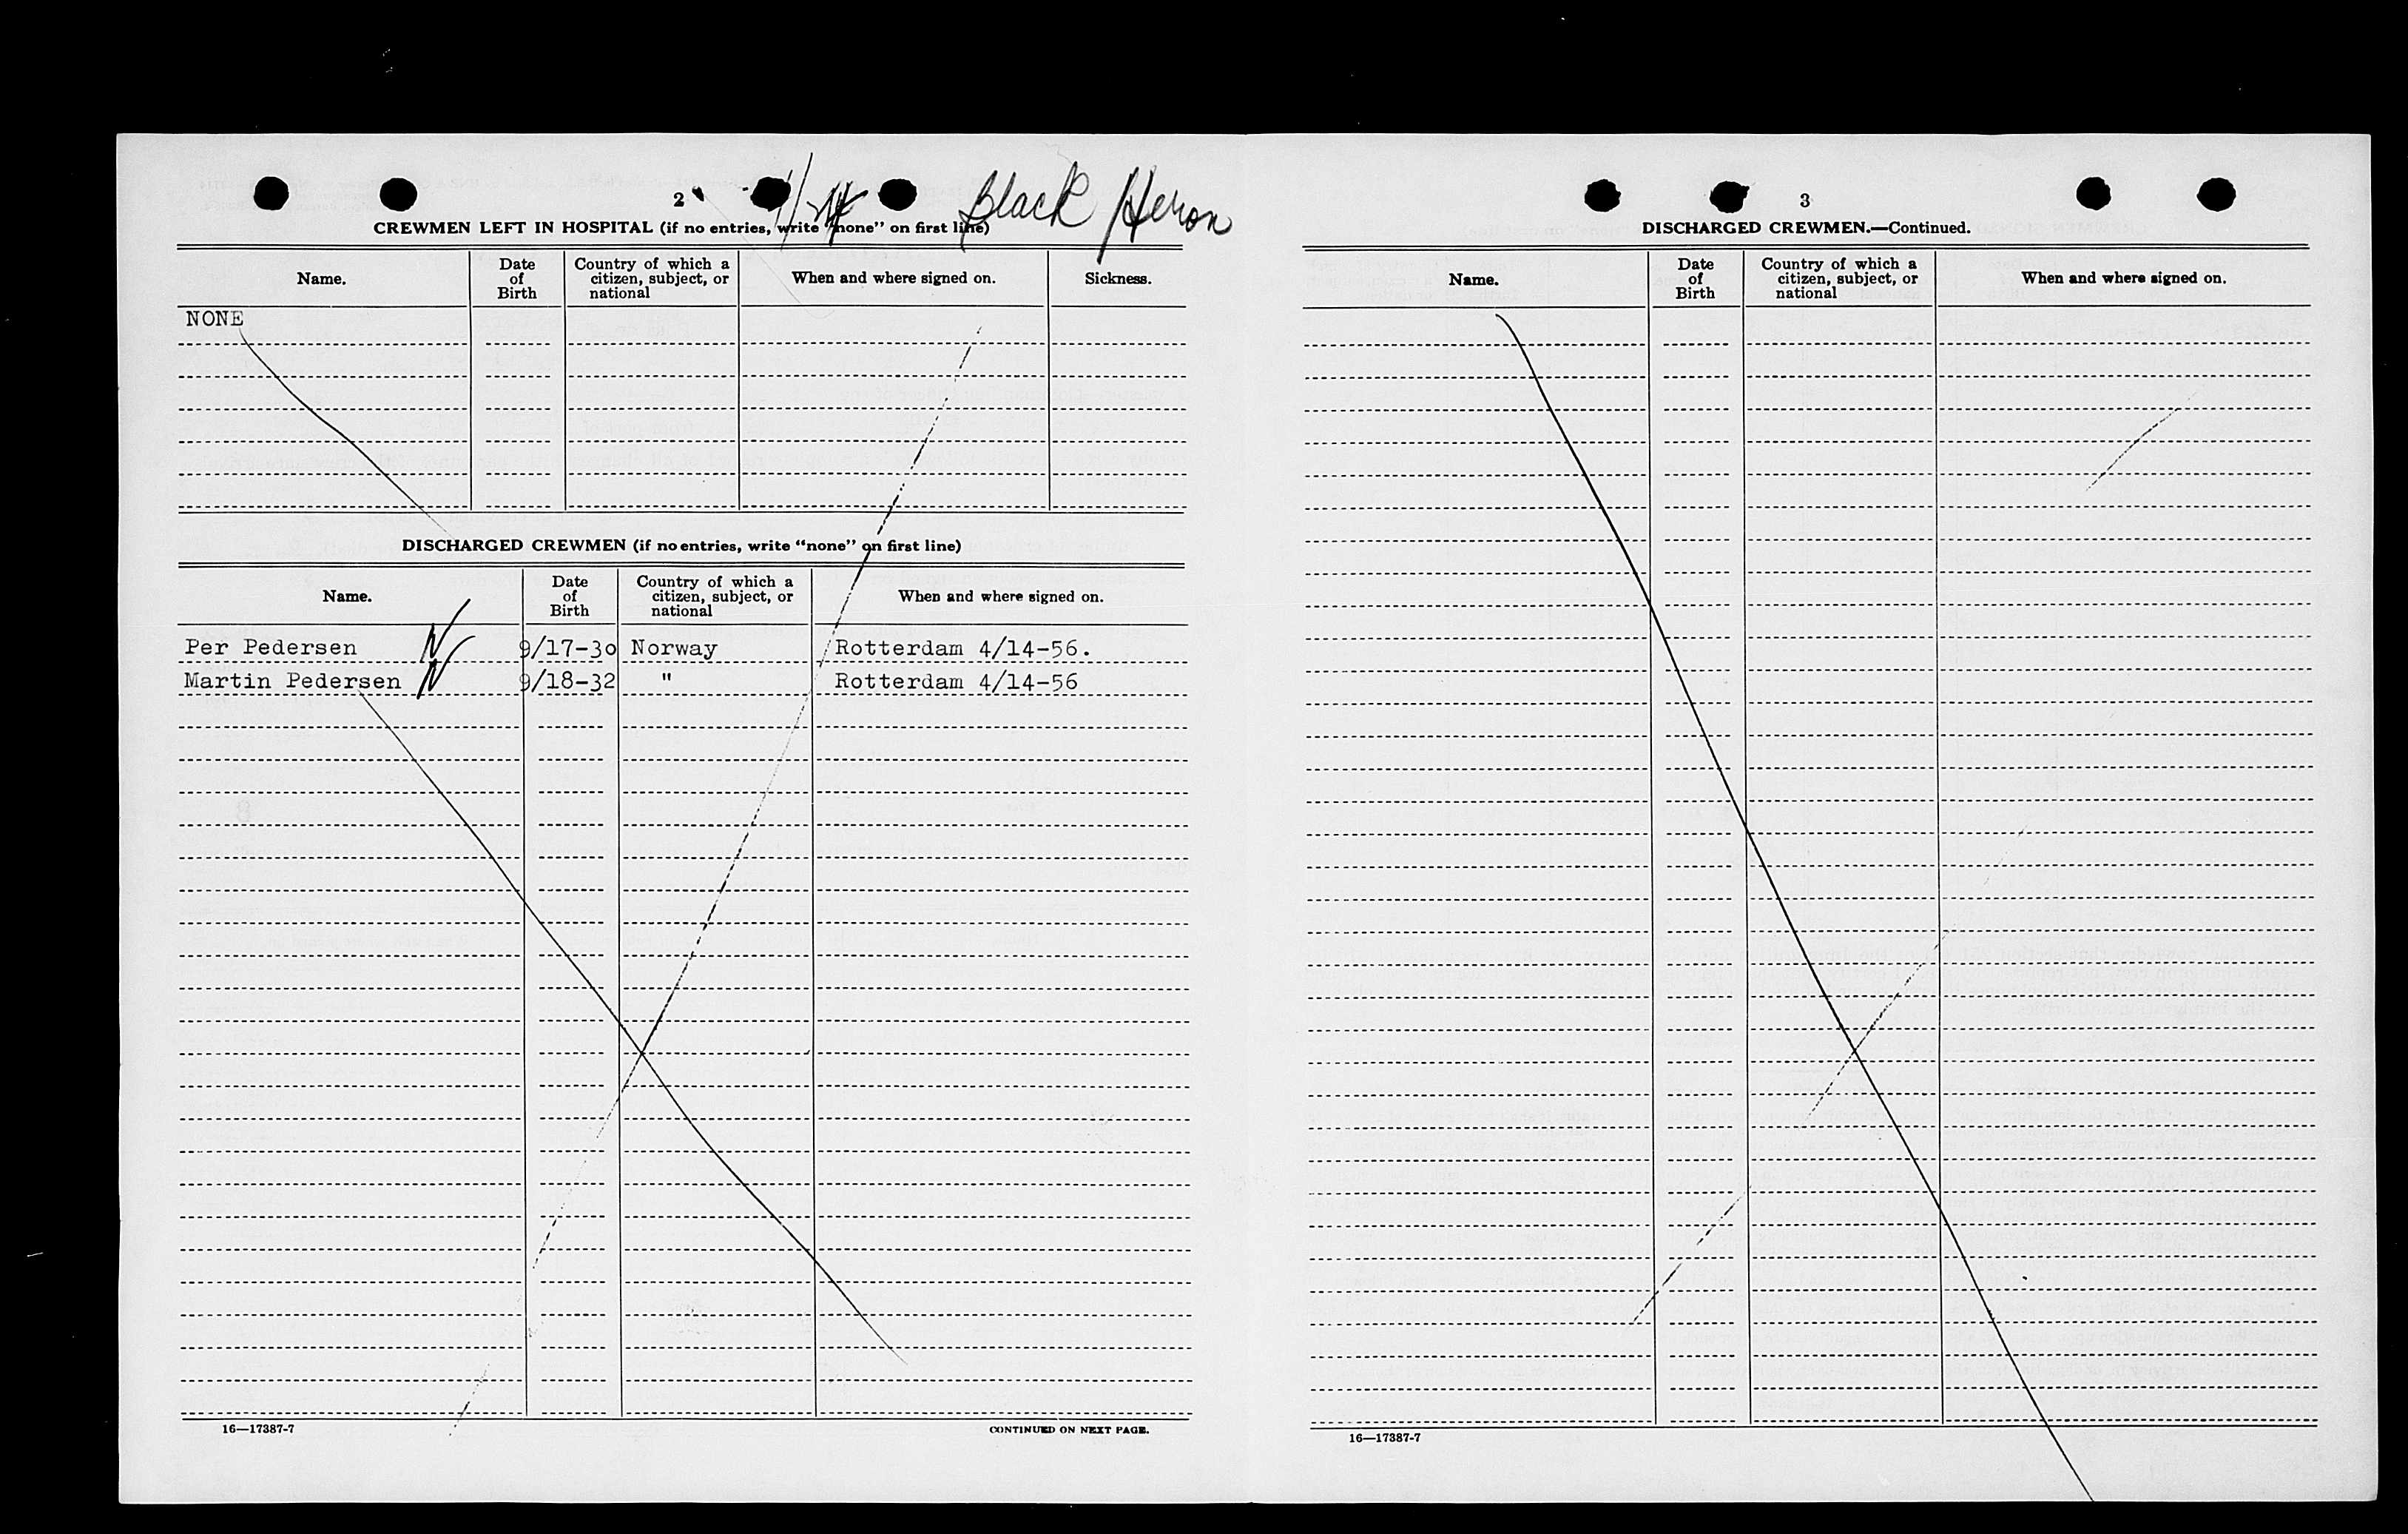 2
Black Heron
CREWMEN LEFT IN HOSPITAL (if no entries, write "none" on first line)
Name.
Date of Birth
Country of which a citizen, subject, or national
When and where signed on.
Sickness.
NONE
DISCHARGED CREWMEN (if no entries, write "none" on first line)
Name.
Date of Birth
Country of which a citizen, subject, or national
When and where signed on.
Per Pedersen 9/17-30 Norway Rotterdam 4/14-56.
Martin Pedersen 9/18-32 " Rotterdam 4/14-56
16—17387-7
CONTINUED ON NEXT PAGE.
3
DISCHARGED CREWMEN.—Continued.
Name.
Date of Birth
Country of which a citizen, subject, or national
When and where signed on.
16—17387-7